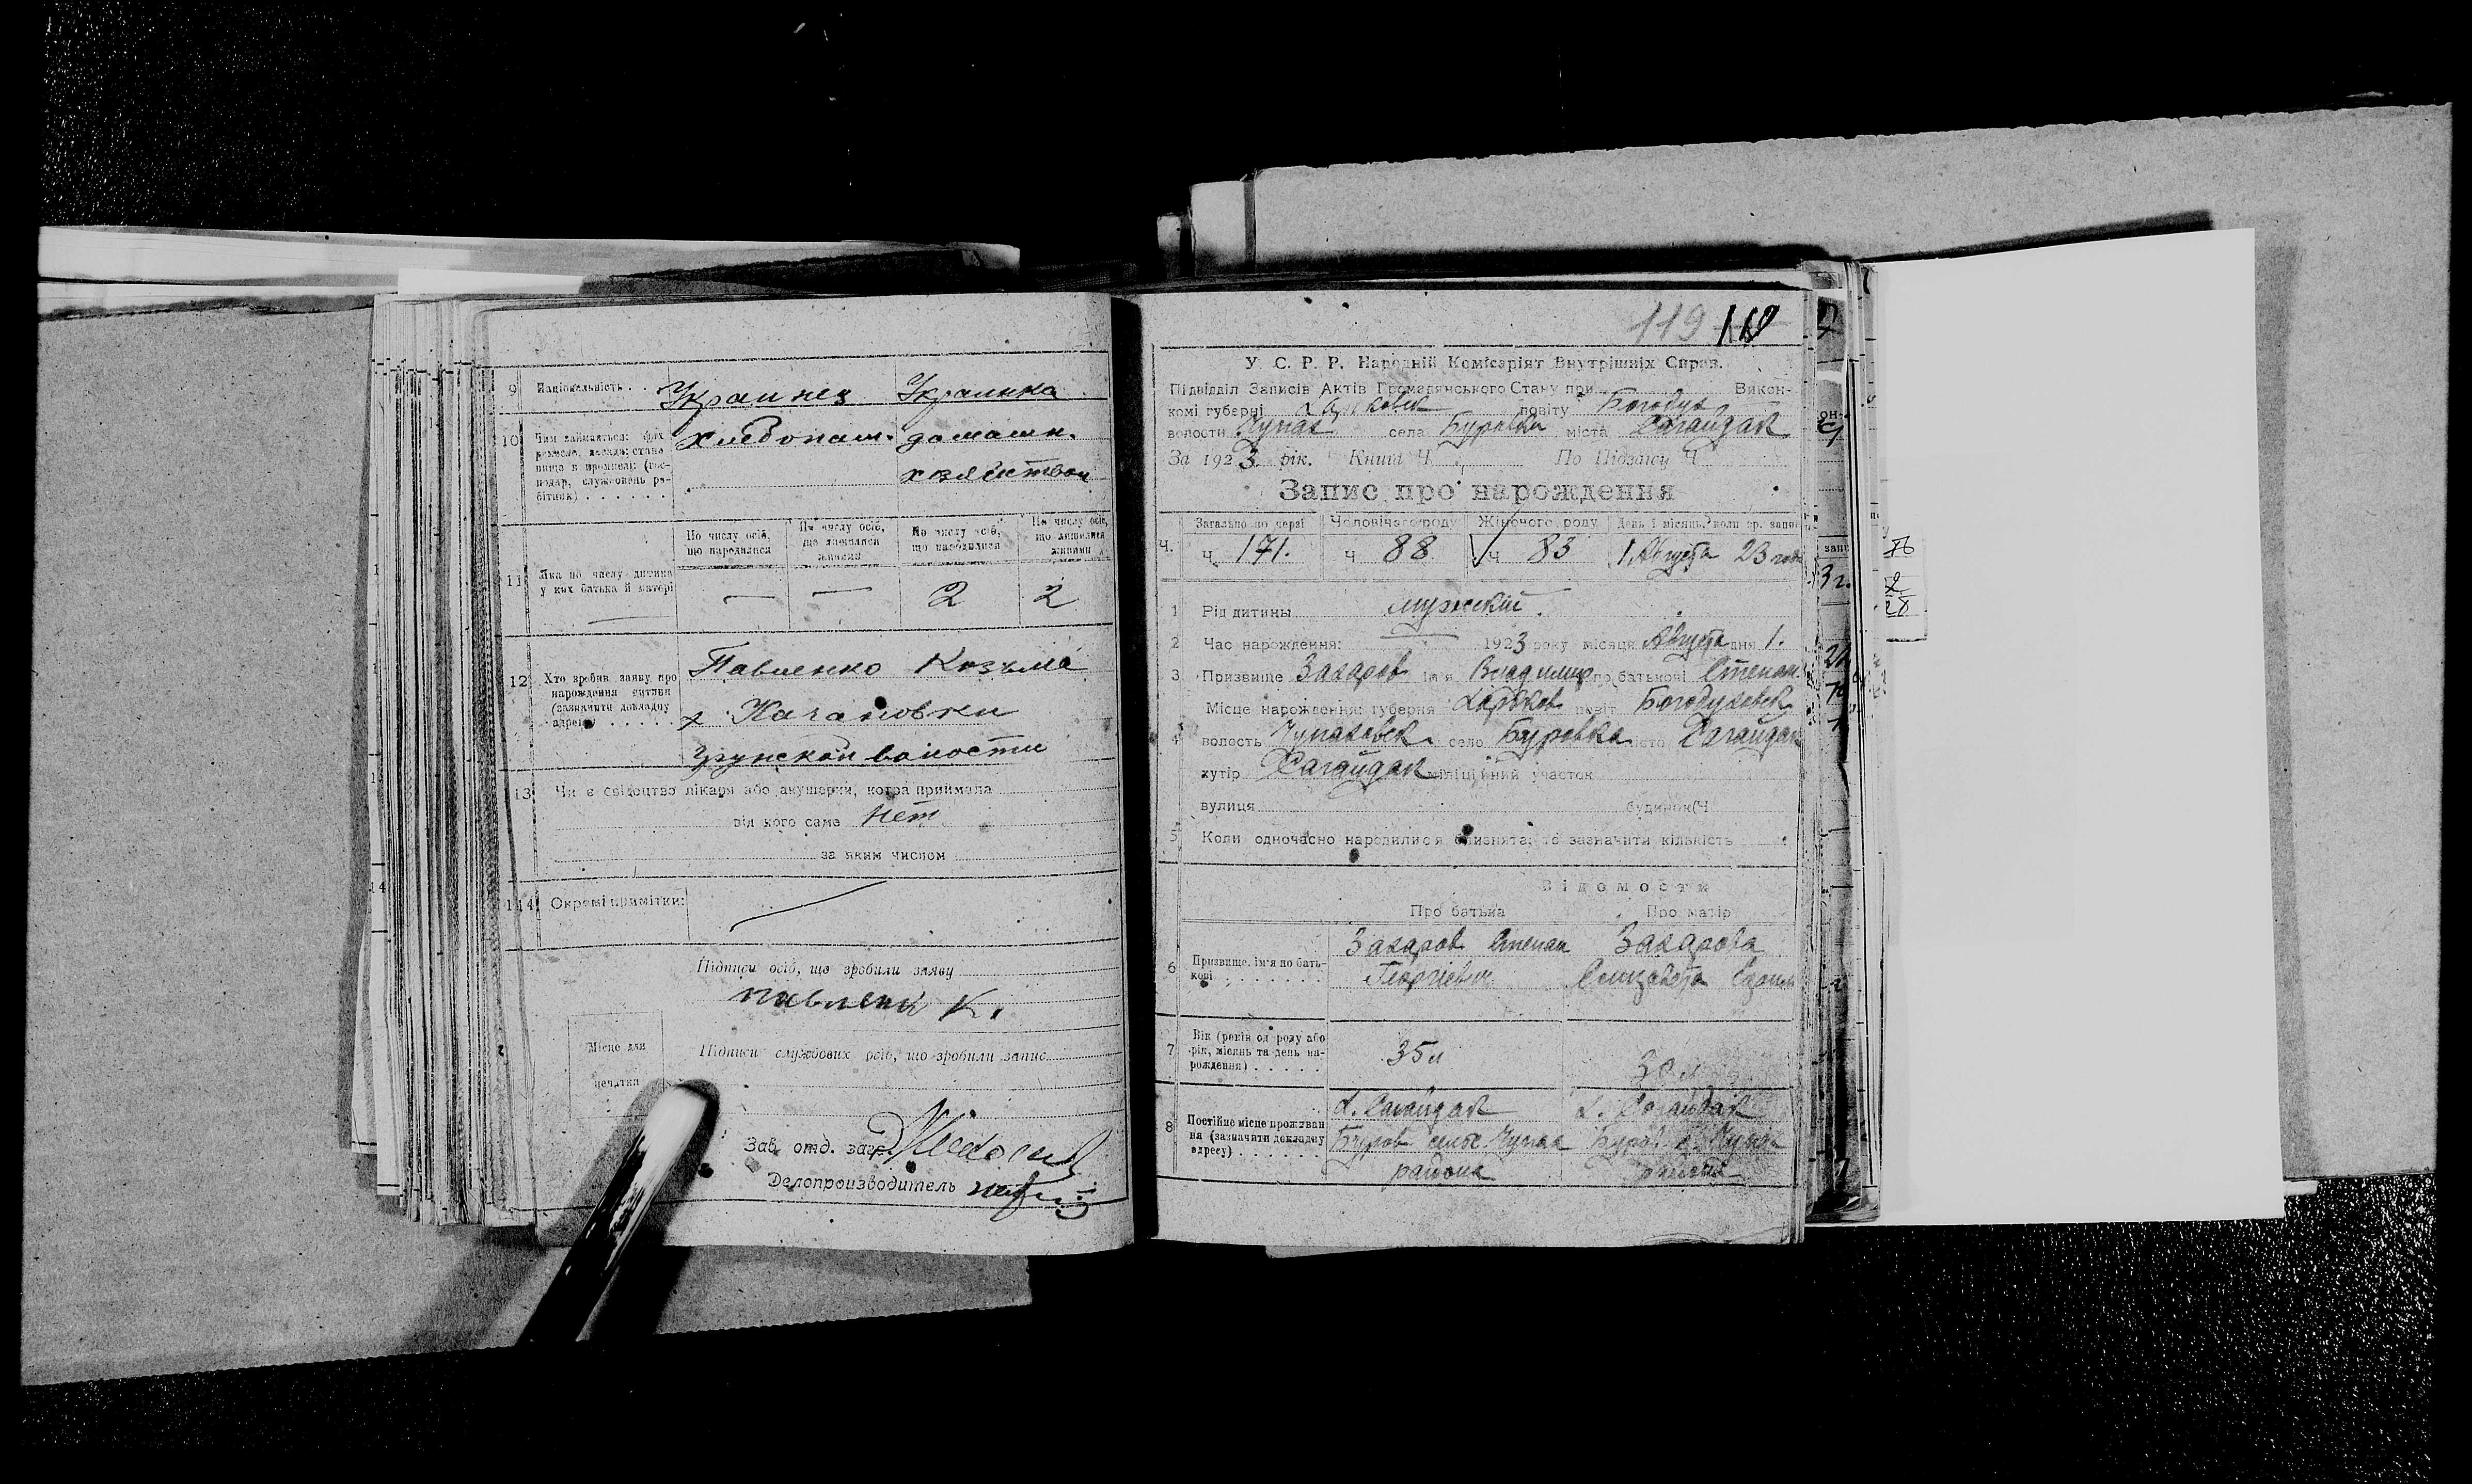 9 Національність . . Украинец Украинка
10 Чим займається: фах, хлебопаш. домашн.
ремесло, посада; стано-
вище в промислі: (гос- хозяйством
подар, служовець ро-
бітник) . . . . . .
По числу осіб, що народилися По числу осіб, що лишилися живими По числу осіб, що народилися По числу осіб, що лишилися живими
11 Яка по числу дитина
у них батька й матері — — 2 2
12 Хто зробив заяву про Павленко Козьма
нарождення дитини
(зазначити докладну
адресу) . . . . . х. Качановки
Грунской волости
13 Чи є свідоцтво лікаря або акушерки, котра приймала
від кого саме нет
за яким числом
14 Окремі примітки:
Підписи осіб, що зробили заяву
павленк К.
Місце для
печатки
Підписи службових осіб, що зробили запис
Зав. отд. загс.
Делопроизводитель
119 119
У. С. Р. Р. Народній Комісаріят Внутрішніх Справ.
Підвідділ Записів Актів Громадянського Стану при Викон-
комі губерні Харьковск повіту Богодух
волости Чупах села Буровки міста Сагайдак
За 1923 рік. Книга Ч. По Підзагсу Ч
Запис про нарождення
Загально по черзі Чоловічого роду Жіночого роду День і місяць, коли зр. запис
ч. ч. 171. ч 88 ч 83 1 Августа 23 года
1 Рід дитини мужский.
2 Час нарождення: 1923 року місяця Августа дня 1.
3 Призвище Захаров ім'я Владимир по батькові Степан.
Місце нарождення: губерня Харьков повіт Богодуховск
4 волость Чупаховск село Буровка місто Сагайдак
хутір Сагайдак міліційний участок
вулиця будинок Ч
5 Коли одночасно народилися близнята, то зазначити кількість
Відомости
Про батька Про матір
6 Призвище, ім'я по бать- Захаров Степан Захарова
кові . . . . . . . Георгиевич Елизавета
7 Вік (років од роду або
рік, місяць та день на- 35 л 30 л
рождения) . . . . .
8 Постійне місце проживан- х. Сагайдак х. Сагайдак
ня (зазначити докладну Буров сельс Чупах Буров с Чупах
адресу) . . . . . . района района